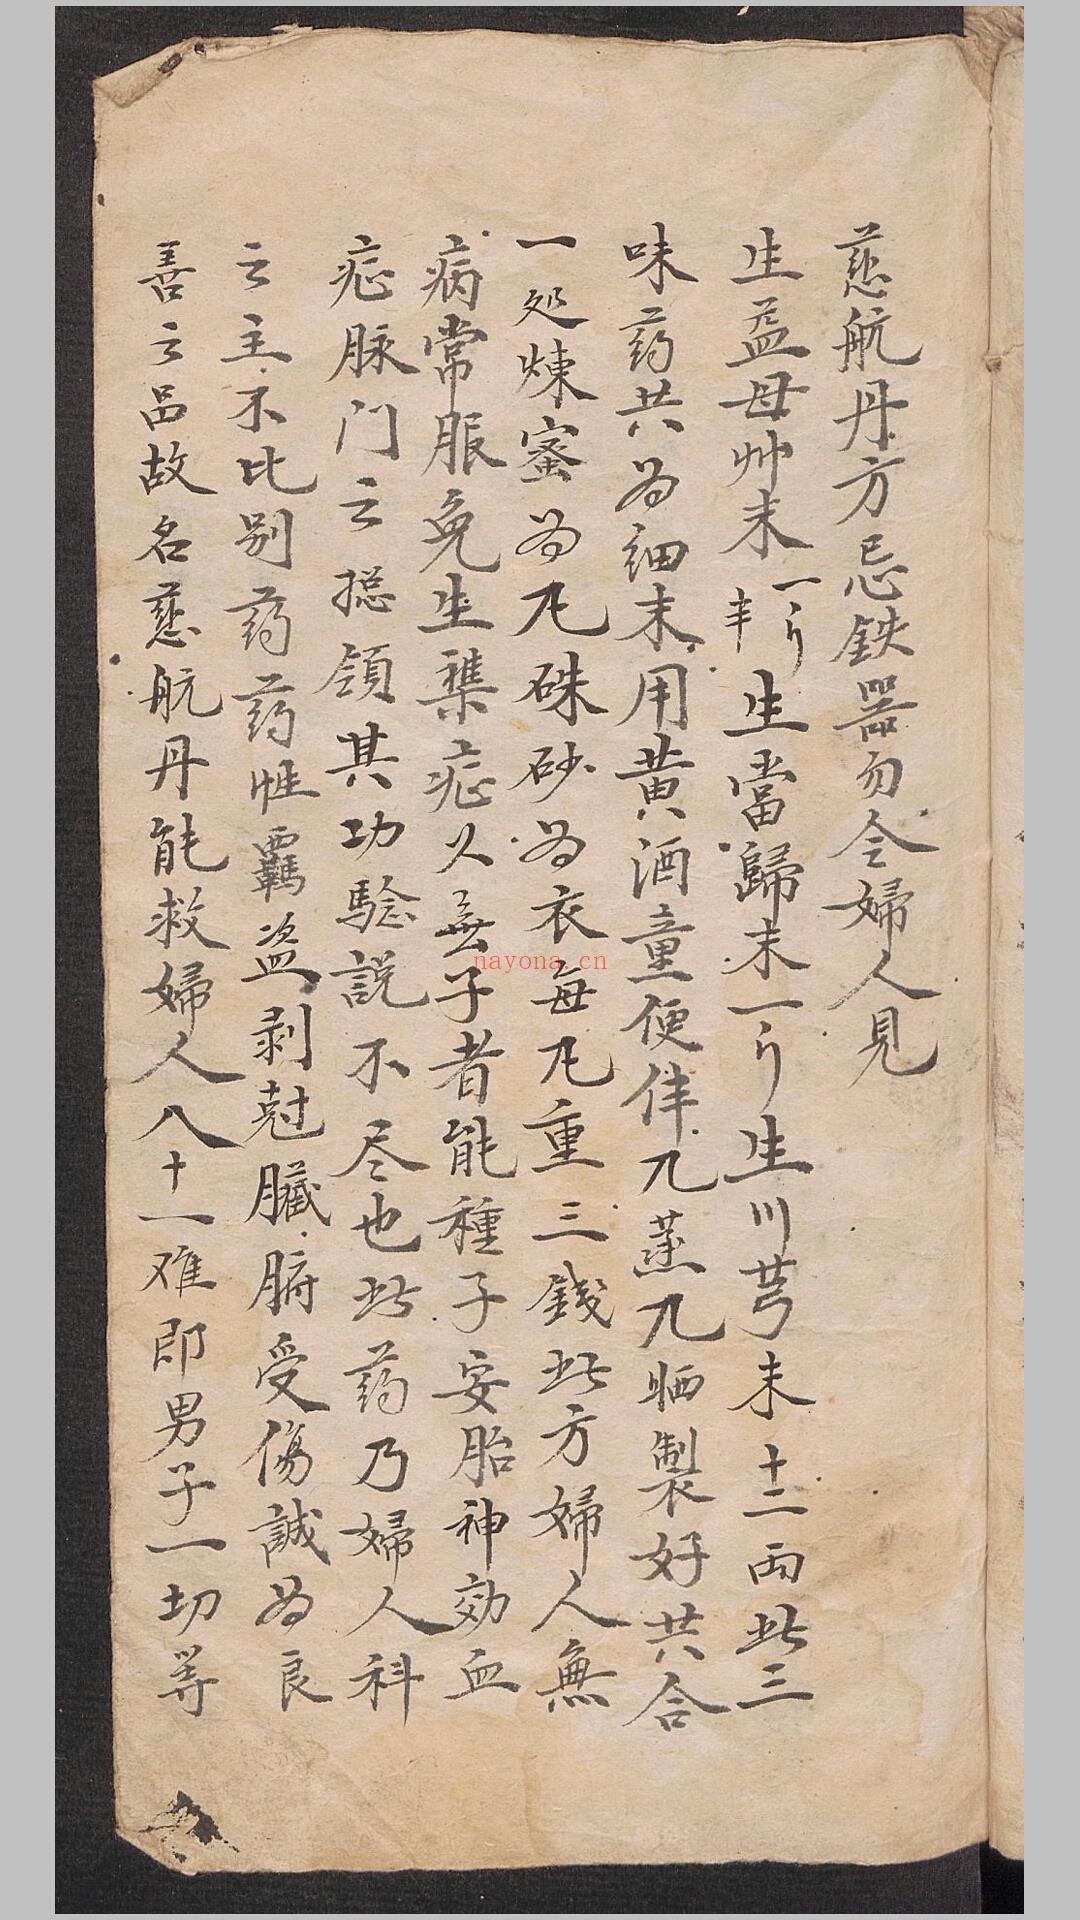 慈航丹方忌鉄器勿令婦人見
生益母艸末一斤半生當歸末一斤生川芎末十二両此三
味药共为细末用黄酒童便伴九蒸九晒製好共合
一処煉蜜为丸硃砂为衣每丸重三錢此方婦人無
病常服免生雜症久無子者能種子安胎神効血
症脉门之揔領其功騐説不尽也此药乃婦人科
之主不比别药药性霸盗剥尅臟腑受傷誠为良
善之品故名慈航丹能救婦人八十一难即男子一切等
nayona.cn